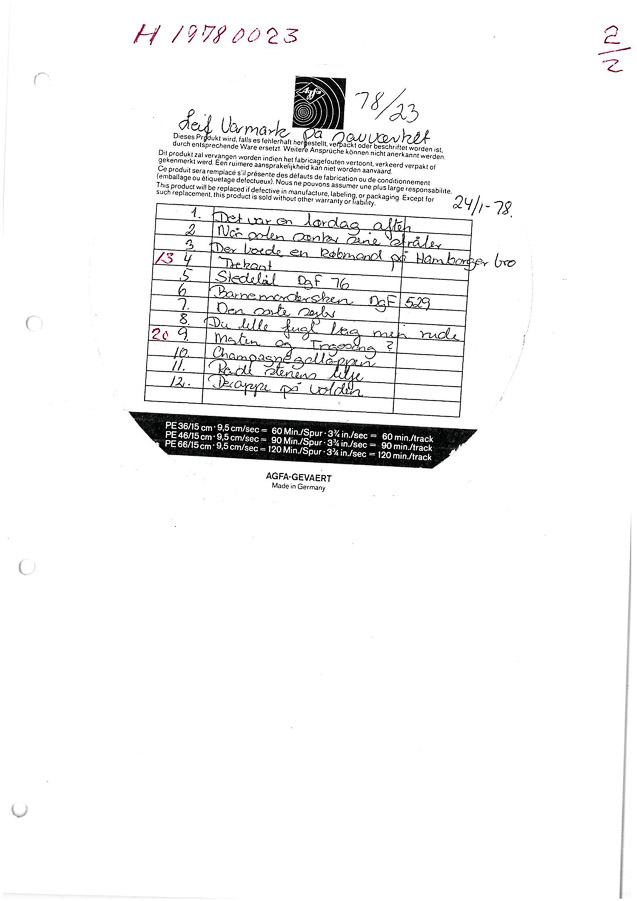 H 19780023
2/2
Agfa
78/23
Leif Varmark på savværket
Dieses Produkt wird, falls es fehlerhaft hergestellt, verpackt oder beschriftet worden ist,
durch entsprechende Ware ersetzt. Weitere Ansprüche können nicht anerkannt werden.
Dit produkt zal vervangen worden indien het fabricagefouten vertoont, verkeerd verpakt of
gekenmerkt werd. Een ruimere aansprakelijkheid kan niet worden aanvaard.
Ce produit sera remplacé s'il présente des défauts de fabrication ou de conditionnement
(emballage ou étiquetage defectueux). Nous ne pouvons assumer une plus large responsabilité.
This product will be replaced if defective in manufacture, labeling, or packaging. Except for
such replacement, this product is sold without other warranty or liability.
24/1-78.
1. Det var en lørdag aften
2 Når solen sænker sine stråler
3 Der boede en købmand på Hamborger bro
13 4 Trekant
5 DgF 76
6 Barnemordersken DgF 529
7. Den sorte
8. Du lille fugl bag min rude
20 9. og ?
10. Champagnegaloppen
11.
12. på volden
PE 36/15 cm · 9,5 cm/sec = 60 Min./Spur · 3¾ in./sec = 60 min./track
PE 46/15 cm · 9,5 cm/sec = 90 Min./Spur · 3¾ in./sec = 90 min./track
PE 66/15 cm · 9,5 cm/sec = 120 Min./Spur · 3¾ in./sec = 120 min./track
AGFA-GEVAERT
Made in Germany